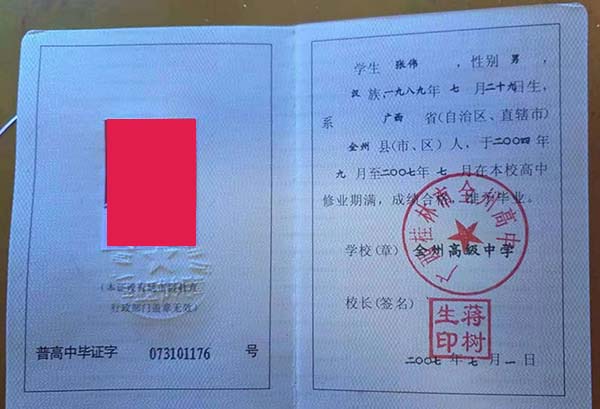 (本证没有
行政部门盖章无效)
普高中毕证字 073101176 号
学生 张伟 ,性别 男 ,
汉 族,一九八九年 七 月二十九日生,
系 广西 省(自治区、直辖市)
全州 县(市、区)人,于二〇〇四年
九 月至二〇〇七年 七 月在本校高中
修业期满,成绩合格,准予毕业。
广西桂林市全州高中
学校(章) 全州高级中学
校长(签名)
蒋树生印
二〇〇七年 七 月 一 日